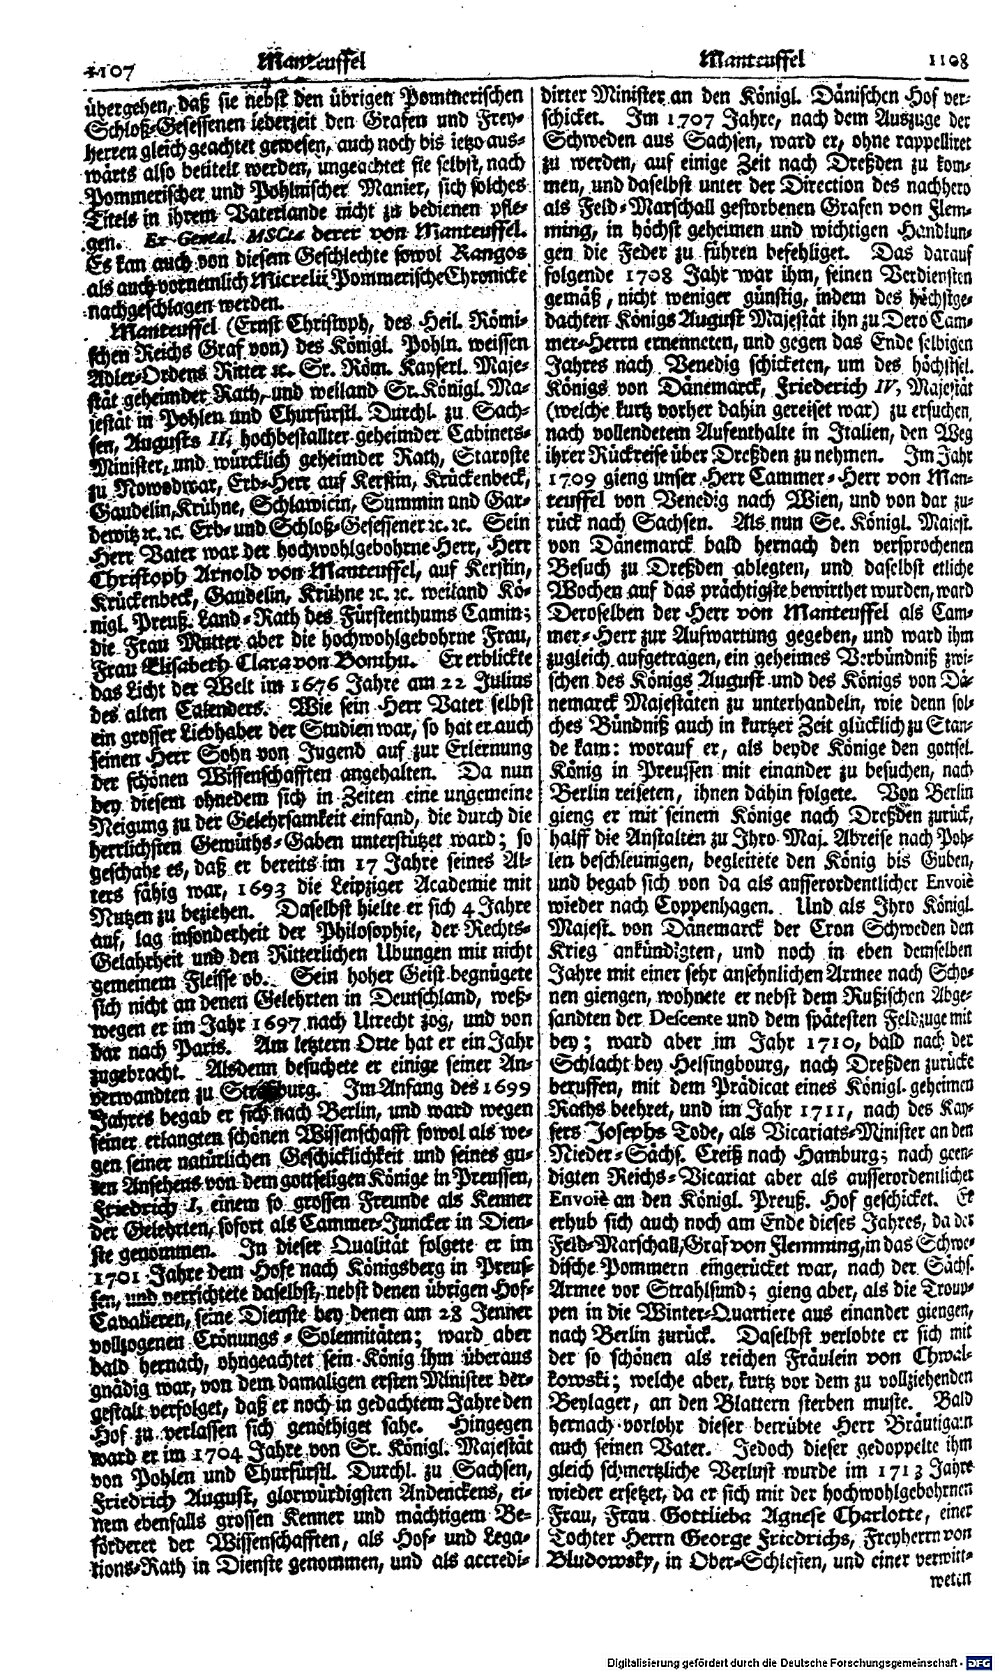 1107 Manteuffel
übergehen, daß sie nebst den übrigen Pommerischen
Schloß-Gesessenen iederzeit den Grafen und Frey-
Herren gleich geachtet gewesen, auch noch bis ietzo aus-
wärts also betitelt werden, ungeachtet sie selbst, nach
Pommerischer und Pohlnischer Manier, sich solches
Titels in ihrem Vaterlande nicht zu bedienen pfle-
gen. Ex Geneal. MSCts derer von Manteuffel.
Es kan auch von diesem Geschlechte sowol Rangos
als auch vornemlich Micrelii Pommerische Chronicke
nachgeschlagen werden.
Manteuffel (Ernst Christoph, des Heil. Römi-
schen Reichs Graf von) des Königl. Pohln. weissen
Adler-Ordens Ritter ꝛc. Sr. Röm. Kayserl. Maje-
stät geheimder Rath, und weiland Sr. Königl. Ma-
jestät in Pohlen und Churfürstl. Durchl. zu Sach-
sen, Augusts II, hochbestallter geheimder Cabinets-
Minister, und würcklich geheimder Rath, Staroste
zu Nowodwar, Erb-Herr auf Kerstin, Krückenbeck,
Gaudelin, Krühne, Schlawicin, Summin und Gar-
dewitz ꝛc. ꝛc. Erb- und Schloß-Gesessener ꝛc. ꝛc. Sein
Herr Vater war der hochwohlgebohrne Herr, Herr
Christoph Arnold von Manteuffel, auf Kerstin,
Krückenbeck, Gaudelin, Krühne ꝛc. ꝛc. weiland Kö-
nigl. Preuß. Land-Rath des Fürstenthums Camin;
die Frau Mutter aber die hochwohlgebohrne Frau,
Frau Elisabeth Clara von Bomhu. Er erblickte
das Licht der Welt im 1676 Jahre am 22 Julius
des alten Calenders. Wie sein Herr Vater selbst
ein grosser Liebhaber der Studien war, so hat er auch
seinen Herr Sohn von Jugend auf zur Erlernung
der schönen Wissenschafften angehalten. Da nun
bey diesem ohnedem sich in Zeiten eine ungemeine
Neigung zu der Gelehrsamkeit einfand, die durch die
herrlichsten Gemüths-Gaben unterstützet ward; so
geschahe es, daß er bereits im 17 Jahre seines Al-
ters fähig war, 1693 die Leipziger Academie mit
Nutzen zu beziehen. Daselbst hielte er sich 4 Jahre
auf, lag insonderheit der Philosophie, der Rechts-
Gelahrheit und den Ritterlichen Ubungen mit nicht
gemeinem Fleisse ob. Sein hoher Geist begnügete
sich nicht an denen Gelehrten in Deutschland, weß-
wegen er im Jahr 1697 nach Utrecht zog, und von
dar nach Paris. Am letztern Orte hat er ein Jahr
zugebracht. Alsdenn besuchete er einige seiner An-
verwandten zu Straßburg. Im Anfang des 1699
Jahres begab er sich nach Berlin, und ward wegen
seiner erlangten schönen Wissenschafft sowol als we-
gen seiner natürlichen Geschicklichkeit und seines gu-
ten Ansehens von dem gottseligen Könige in Preussen,
Friedrich I, einem so grossen Freunde als Kenner
der Gelehrten, sofort als Cammer-Juncker in Dien-
ste genommen. In dieser Qualität folgete er im
1701 Jahre dem Hofe nach Königsberg in Preus-
sen, und verrichtete daselbst, nebst denen übrigen Hof-
Cavalieren, seine Dienste bey denen am 28 Jenner
vollzogenen Crönungs-Solennitäten; ward aber
bald hernach, ohngeachtet sein König ihm überaus
gnädig war, von dem damaligen ersten Minister der-
gestalt verfolget, daß er noch in gedachtem Jahre den
Hof zu verlassen sich genöthiget sahe. Hingegen
ward er im 1704 Jahre von Sr. Königl. Majestät
von Pohlen und Churfürstl. Durchl. zu Sachsen,
Friedrich August, glorwürdigsten Andenckens, ei-
nem ebenfalls grossen Kenner und mächtigem Be-
förderer der Wissenschafften, als Hof- und Lega-
tions-Rath in Dienste genommen, und als accredi-
Manteuffel 1108
dirter Minister an den Königl. Dänischen Hof ver-
schicket. Im 1707 Jahre, nach dem Auszuge der
Schweden aus Sachsen, ward er, ohne rappelliret
zu werden, auf einige Zeit nach Dreßden zu kom-
men, und daselbst unter der Direction des nachhero
als Feld-Marschall gestorbenen Grafen von Flem-
ming, in höchst geheimen und wichtigen Handlun-
gen die Feder zu führen befehliget. Das darauf
folgende 1708 Jahr war ihm, seinen Verdiensten
gemäß, nicht weniger günstig, indem des höchstge-
dachten Königs August Majestät ihn zu Dero Cam-
mer-Herrn ernenneten, und gegen das Ende selbigen
Jahres nach Venedig schicketen, um des höchstsel.
Königs von Dänemarck, Friederich IV, Majestät
(welche kurtz vorher dahin gereiset war) zu ersuchen,
nach vollendetem Aufenthalte in Italien, den Weg
ihrer Rückreise über Dreßden zu nehmen. Im Jahr
1709 gieng unser Herr Cammer-Herr von Man-
teuffel von Venedig nach Wien, und von dar zu-
rück nach Sachsen. Als nun Se. Königl. Majest.
von Dänemarck bald hernach den versprochenen
Besuch zu Dreßden ablegten, und daselbst etliche
Wochen auf das prächtigste bewirthet wurden, ward
Deroselben der Herr von Manteuffel als Cam-
mer-Herr zur Aufwartung gegeben, und ward ihm
zugleich aufgetragen, ein geheimes Verbündniß zwi-
schen des Königs August und des Königs von Dä-
nemarck Majestäten zu unterhandeln, wie denn sol-
ches Bündniß auch in kurtzer Zeit glücklich zu Stan-
de kam: worauf er, als beyde Könige den gottsel.
König in Preussen mit einander zu besuchen, nach
Berlin reiseten, ihnen dahin folgete. Von Berlin
gieng er mit seinem Könige nach Dreßden zurück,
halff die Anstalten zu Ihro Maj. Abreise nach Poh-
len beschleunigen, begleitete den König bis Guben,
und begab sich von da als ausserordentlicher Envoiè
wieder nach Coppenhagen. Und als Ihro Königl.
Majest. von Dänemarck der Cron Schweden den
Krieg ankündigten, und noch in eben demselben
Jahre mit einer sehr ansehnlichen Armee nach Scho-
nen giengen, wohnete er nebst dem Rußischen Abge-
sandten der Descente und dem spätesten Feldzuge mit
bey; ward aber im Jahr 1710, bald nach der
Schlacht bey Helsingbourg, nach Dreßden zurücke
beruffen, mit dem Prädicat eines Königl. geheimen
Raths beehret, und im Jahr 1711, nach des Kay-
sers Josephs Tode, als Vicariats-Minister an den
Nieder-Sächs. Creiß nach Hamburg; nach geen-
digten Reichs-Vicariat aber als ausserordentlicher
Envoiè an den Königl. Preuß. Hof geschicket. Er
erhub sich auch noch am Ende dieses Jahres, da der
Feld-Marschall, Graf von Flemming, in das Schwe-
dische Pommern eingerücket war, nach der Sächs.
Armee vor Strahlsund; gieng aber, als die Troup-
pen in die Winter-Quartiere aus einander giengen,
nach Berlin zurück. Daselbst verlobte er sich mit
der so schönen als reichen Fräulein von Chwal-
kowski; welche aber, kurtz vor dem zu vollziehenden
Beylager, an den Blattern sterben muste. Bald
hernach vorlohr dieser betrübte Herr Bräutigam
auch seinen Vater. Jedoch dieser gedoppelte ihm
gleich schmertzliche Verlust wurde im 1713 Jahre
wieder ersetzet, da er sich mit der hochwohlgebohrnen
Frau, Frau Gottlieba Agnese Charlotte, einer
Tochter Herrn George Friedrichs, Freyherrn von
Bludowsky, in Ober-Schlesien, und einer verwitt-
weten
Digitalisierung gefördert durch die Deutsche Forschungsgemeinschaft - DFG